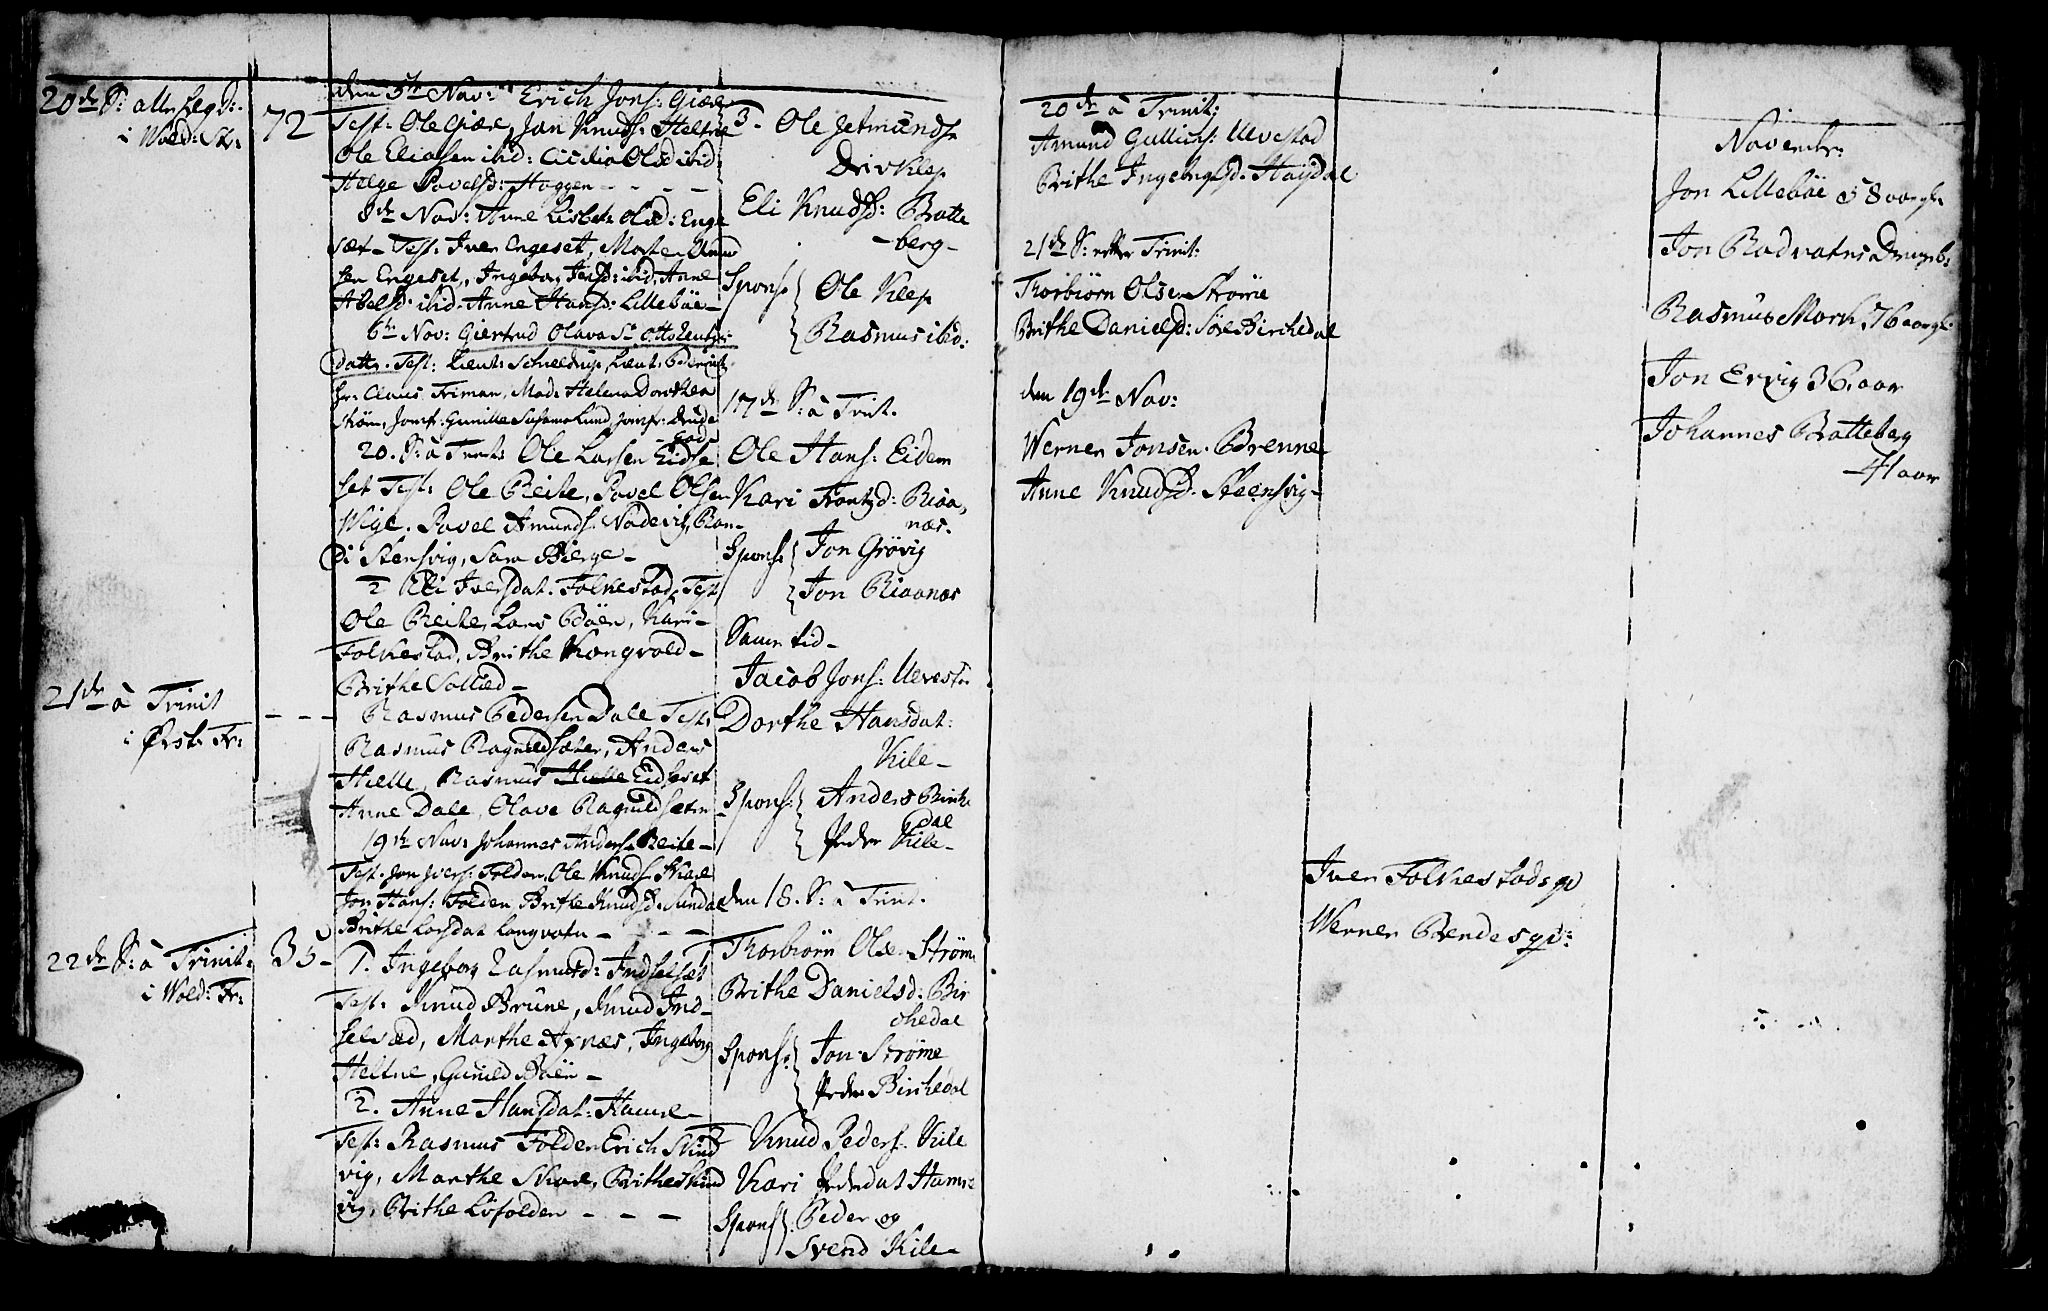 20de S: alle Legd:
i Wold: Kr:
72
den 5te Nov: Erich Jons: Giær
Test: Ole Giær, Jon Knuds: Heltne
Ole Eliasen ibid: Cicilia Olsd ibid:
Helge Povelsd: Haggen - - - -
8de Nov: Anne Lisbet Olsd: Enge
sæt - Test: Iver Engeset, Morten
sen Engeset, Ingebor Jensd: ibid, Anne
Abelsd: ibid. Anne Hansd: Lillebøe -
6te Nov: Giertrud Olava
Datter. Test: Lieut: Schieldrup, Lieut:
hr: Claus Friman, Mad: Helena Dorothea
Strøm, Jomfr: Gunilla Susanna Lund, Jomfr: Drude
20. S: à Trint: Ole Larsen Eidse
set Test: Ole Reite, Povel Olsen
Wige. Povel Amunds. Nødevig, Ran-
di Stensvig, Sara Biørge -
2 Eli Iversdat. Folkestad, Test
Ole Reite, Lars Bøen, Kari -
Folkestad, Brithe Kongvold -
Brithe Sollied -
21de à Trinit
i Ørst: Fr:
- - -
Rasmus Pedersen Dale Test:
Rasmus Ragnildsæter, Anders
Hielle, Rasmus Hielle Eidseset
Anne Dale, Olave Ragnildsætr
19de Nov: Johannes Anders: Reite -
Test. Jon Ivers: Folden, Ole Knuds: Skare
Jon Hans: Folden Brithe Knudsd. Sundal
Brithe Larsdat Langvatn - - - -
22de S: à Trinit:
i Wold: Fr:
33 -
1. Ingeborg Rasmusd: Indselset
Test: Knud Brune, Knud Ind-
selsæd, Marthe Axnæs, Ingeborg
Heltne, Gunild Bøen -
2. Anne Hansdat: Hamre -
Test: Rasmus Folden Erich Skind
vig, Marthe Skare, Brithe Skind
vig, Brithe Løfolden - - - -
3. Ole Jetmundsn
Dirklep
Eli Knudsd: Batte
- berg -
Spons: Ole Klep
Rasmus ibid:
17de S: à Trint.
Ole Hans: Eidem
Kari Frantzd: Riaa,
næs.
Spons: Jon Grøvig
Jon Riaanæs
Samme tid -
Jacob Jons: Ulvestd
Dorthe Hansdat:
Kile -
Spons: Anders Birke
dal
Peder Kile -
den 18. S: à Trint.
Thorbiørn Olsen Strøm
Brithe Danielsd: Bir
chedal
Spons: Jon Strøme
Peder Birchedal
Knud Peders: Kile
Kari Pedersdat Hamre
Spons: Peder og
Svend Kile -
20de à Trinit:
Amund Gullichs: Ulvestad
Brithe Ingebrigtsd. Høydal
21de S: efter Trinit:
Thorbiørn Olsen Strøme
Brithe Danielsd: Søre Birchedal
den 19de Nov:
Werner Jonsen. Brenne
Anne Knudsd. Steensvig -
Iver Folkestads gp
Werner Bendes gp:
November:
Jon Lillebøe 58 aargl:
Jon Rødvatnes Drengeb:
Rasmus Mork, 76 aargl:
Jon Ervig 36, aar
Johannes Batteberg
41 aar